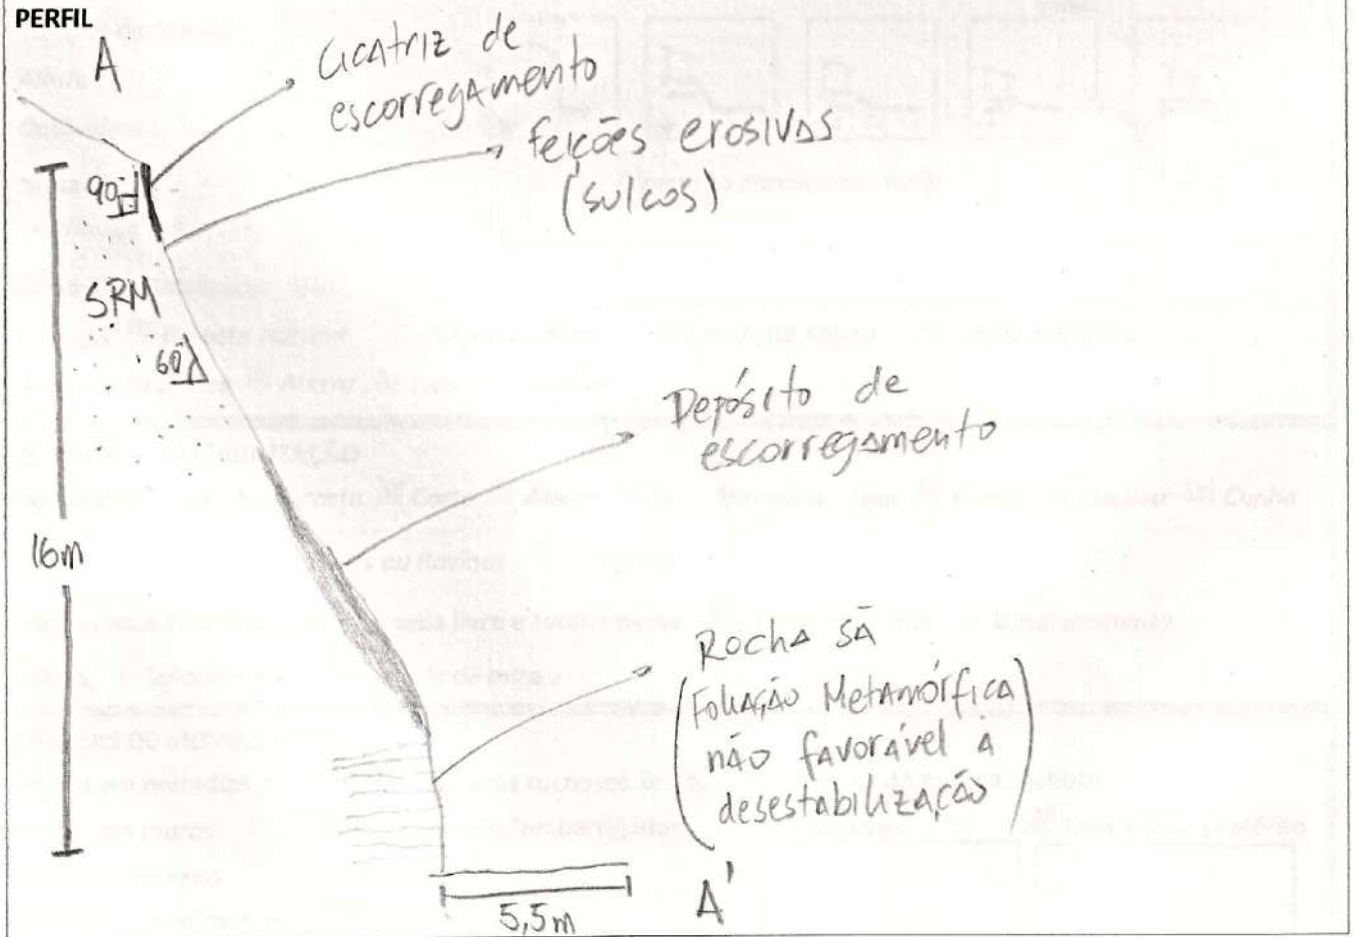 PERFIL
A
Cicatriz de
escorregamento
feições erosivas
(sulcos)
90°
SRM
60°
Depósito de
escorregamento
16m
Rocha sã
(Foliação Metamórfica
não favorável a
desestabilização)
5,5m
A'